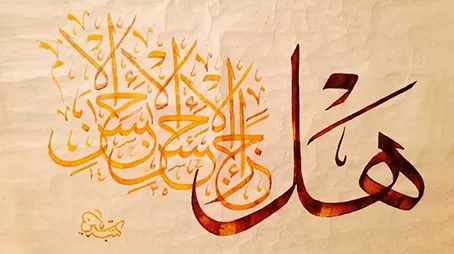 هل جزاء الإحسان إلا الإحسان
كتبه